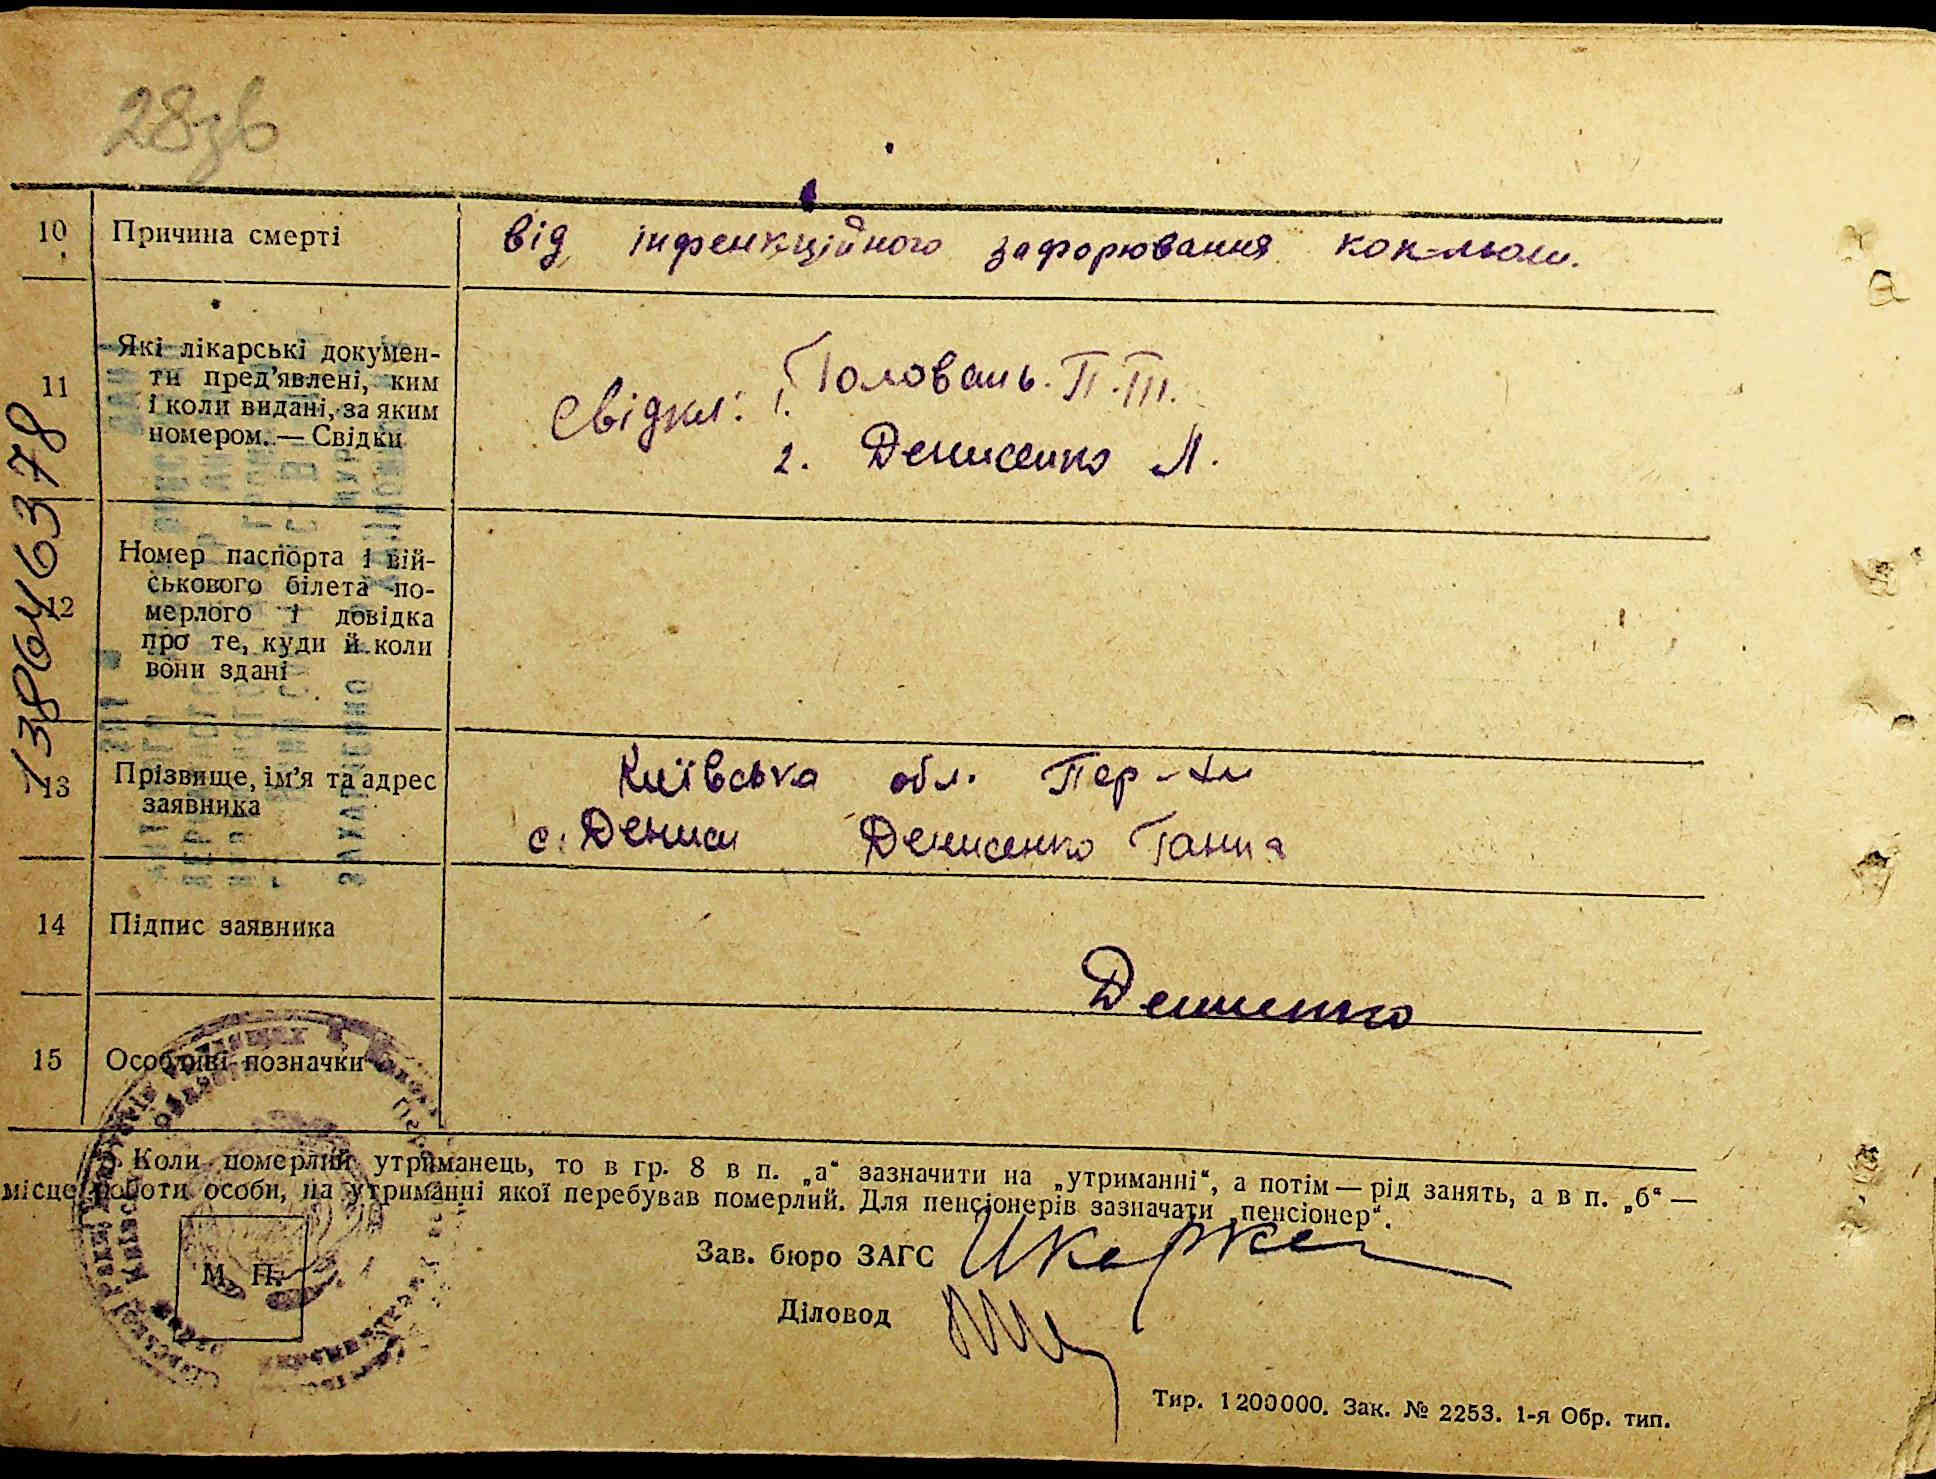 28зв
10 Причина смерті від інфенкційного зафорювання коклюш.
11 Які лікарські докумен-
ти пред'явлені, ким
і коли видані, за яким
номером. — Свідки
Свідки: 1. Головань. П. Т.
2. Денисенко Л.
12 Номер паспорта і вій-
ськового білета по-
мерлого і довідка
про те, куди й коли
вони здані
1386446378
13 Прізвище, ім'я та адрес
заявника
Київська обл. Пер-
с. Дениси Денисенко Ганна
14 Підпис заявника
Денисенко
15 Особливі позначки
Коли померлий утриманець, то в гр. 8 в п. „а“ зазначити на „утриманні“, а потім — рід занять, а в п. „б“ —
місце роботи особи, на утриманні якої перебував померлий. Для пенсіонерів зазначати „пенсіонер“.
М. П.
Зав. бюро ЗАГС
Діловод
Тир. 1200000. Зак. № 2253. 1-я Обр. тип.